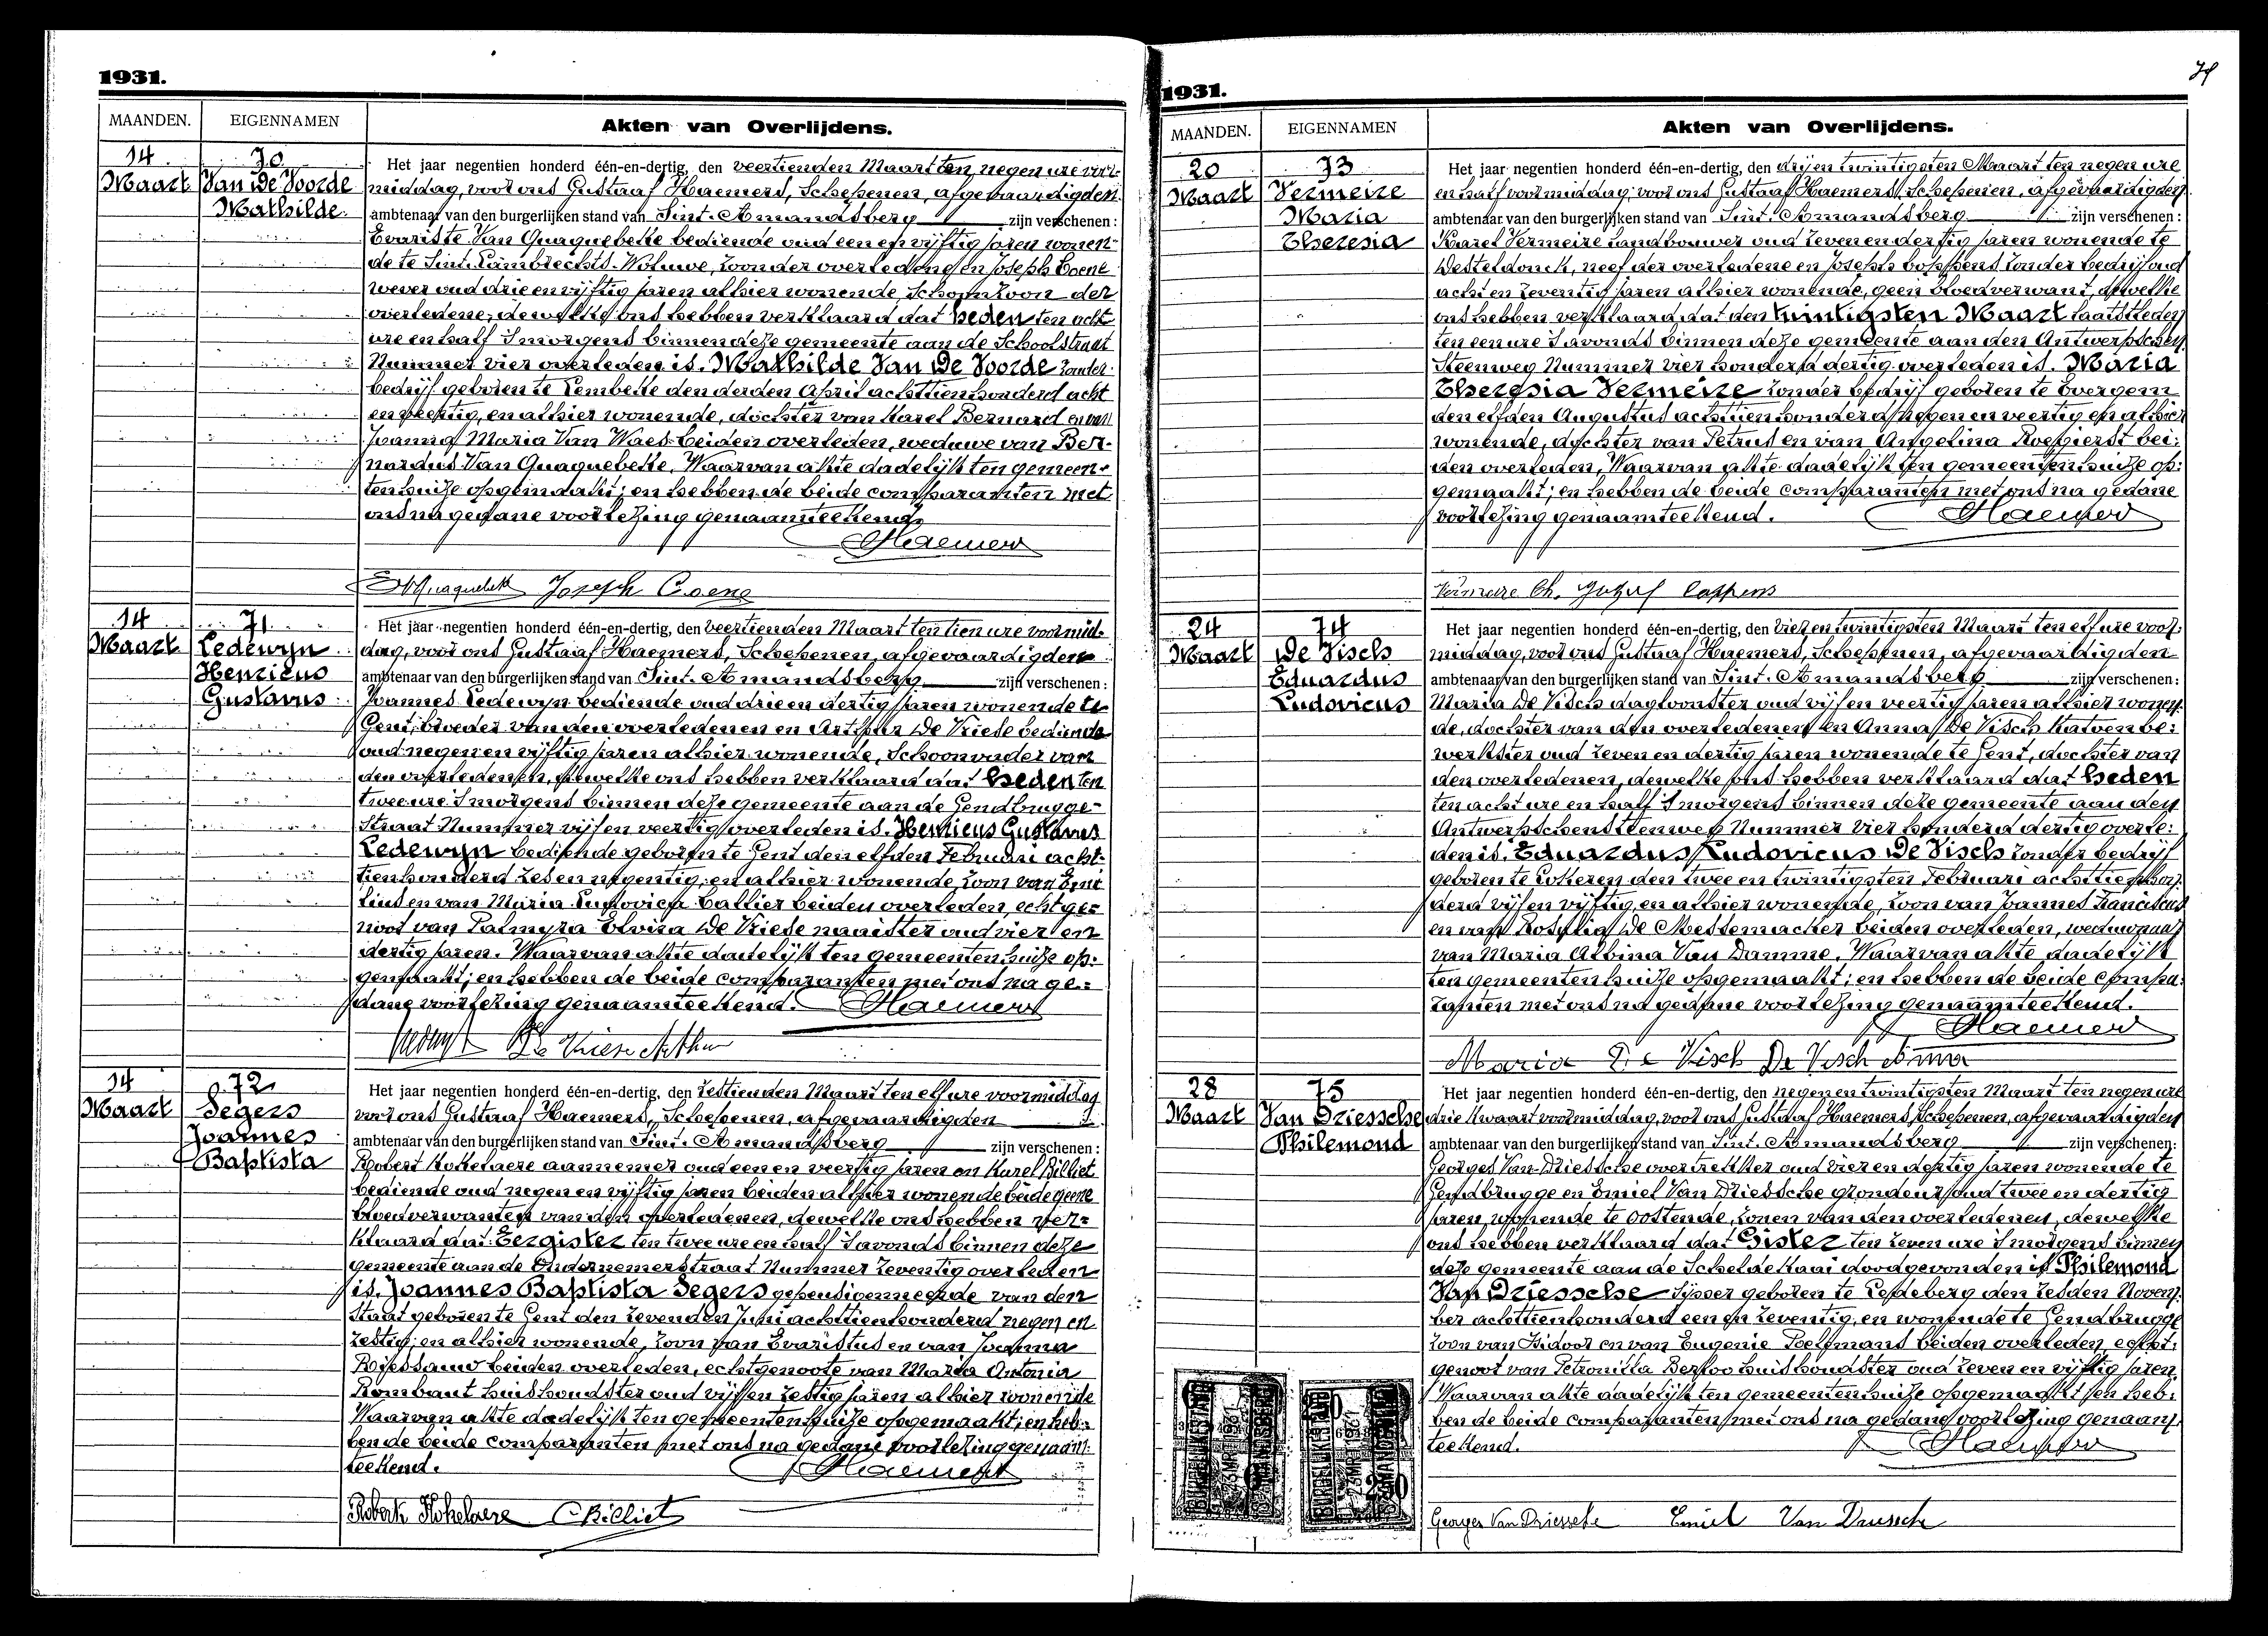 1931.
MAANDEN. EIGENNAMEN Akten van Overlijdens.
14 70
Maart Van De Voorde
Mathilde.
Het jaar negentien honderd één-en-dertig, den veertienden Maart ten negen ure voor-
middag, voor ons Gustaaf Haemers, Schepenen, afgevaardigden
ambtenaar van den burgerlijken stand van Sint-Amandsberg zijn verschenen:
Evariste Van Quaquebeke bediende oud een en vijftig jaren wonen-
de te Sint-Lambrechts-Woluwe, zoon der overledene en Joseph Coene
wever oud drie en vijftig jaren alhier wonende, Schoonzoon der
overledene, dewelke ons hebben verklaard dat heden ten acht
ure en half 's morgens binnen deze gemeente aan de Schoolstraat
Nummer vier overleden is. Mathilde Van De Voorde zonder
bedrijf geboren te Lembeke den derden April achttienhonderd acht
en veertig, en alhier wonende, dochter van Karel Bernard en van
Joanna Maria Van Waes beiden overleden, weduwe van Ber-
nardus Van Quaquebeke, Waarvan akte dadelijk ten gemeen-
tenhuize opgemaakt; en hebben de beide comparanten met
ons na gedane voorlezing genaamteekend.
Haemers
Joseph Coene
14 71
Maart Ledewyn
Henricus
Gustavus
Het jaar negentien honderd één-en-dertig, den veertienden Maart ten tien ure voormid-
dag, voor ons Gustaaf Haemers, Schepenen, afgevaardigden
ambtenaar van den burgerlijken stand van Sint-Amandsberg zijn verschenen:
Joannes Ledewyn bediende oud drie en dertig jaren wonende te
Gent, broeder van den overledenen en Arthur De Vriese bediende
oud negen en vijftig jaren alhier wonende, Schoonvader van
den overledenen, dewelke ons hebben verklaard dat heden ten
twee ure 's morgens binnen deze gemeente aan de Gendbrugge-
Straat Nummer vijf en veertig overleden is. Henricus Gustavus
Ledewyn bediende geboren te Gent den elfden Februari acht-
tienhonderd zes en negentig, en alhier wonende, zoon van Emi
lius en van Maria Ludovica Callier beiden overleden, echtge-
noot van Palmyra Elvira De Vriese naaister oud vier en
dertig jaren. Waarvan akte dadelijk ten gemeentenhuize op-
gemaakt; en hebben de beide comparanten met ons na ge-
dane voorlezing genaamteekend. Haemers
De Vriese Arthur
14 72
Maart Segers
Joannes
Baptista
Het jaar negentien honderd één-en-dertig, den zestienden Maart ten elf ure voormiddag
voor ons Gustaaf Haemers, Schepenen, afgevaardigden
ambtenaar van den burgerlijken stand van Sint-Amandsberg zijn verschenen:
Robert Kokelaere aannemer oud een en veertig jaren en Karel Billiet
bediende oud negen en vijftig jaren beiden alhier wonende beide geene
bloedverwanten van den overledenen, dewelke ons hebben ver-
klaard dat Eergister ten twee ure en half 's avonds binnen deze
gemeente aan de Ondernemerstraat Nummer zeventig overleden
is. Joannes Baptista Segers gepensionneerde van den
Staat geboren te Gent den zevenden Juni achttienhonderd negen en
zestig, en alhier wonende, zoon van Evaristus en van Joanna
beiden overleden, echtgenoote van Maria Antonia
Rombaut huishoudster oud vijf en zestig jaren alhier wonende
Waarvan akte dadelijk ten gemeentenhuize opgemaakt; en heb-
ben de beide comparanten met ons na gedane voorlezing genaam-
teekend. Haemers
Robert Kokelaere C Billiet
1931.
MAANDEN. EIGENNAMEN Akten van Overlijdens.
20 73
Maart Vermeire
Maria
Theresia
Het jaar negentien honderd één-en-dertig, den drij en twintigsten Maart ten negen ure
en half voormiddag, voor ons Gustaaf Haemers, Schepenen, afgevaardigden
ambtenaar van den burgerlijken stand van Sint-Amandsberg zijn verschenen:
Karel Vermeire landbouwer oud zeven en dertig jaren wonende te
Desteldonck, neef der overledene en Joseph Coppens zonder bedrijf oud
acht en zeventig jaren alhier wonende, geen bloedverwant, dewelke
ons hebben verklaard dat den twintigsten Maart laatstleden
ten een ure 's avonds binnen deze gemeente aan den Antwerpschen
Steenweg Nummer vier honderd dertig overleden is. Maria
Theresia Vermeire zonder bedrijf geboren te Evergem
den elfden Augustus achttienhonderd negen en veertig en alhier
wonende, dochter van Petrus en van Angelina Roegierst bei-
den overleden, Waarvan akte dadelijk ten gemeentenhuize op-
gemaakt; en hebben de beide comparanten met ons na gedane
voorlezing genaamteekend. Haemers
Vermeire Ch. Jozef Coppens
24 74
Maart De Visch
Eduardus
Ludovicus
Het jaar negentien honderd één-en-dertig, den vier en twintigsten Maart ten elf ure voor-
middag, voor ons Gustaaf Haemers, Schepenen, afgevaardigden
ambtenaar van den burgerlijken stand van Sint-Amandsberg zijn verschenen:
Maria De Visch dagloonster oud vijf en veertig jaren alhier wonen-
de, dochter van den overledenen en Anna De Visch katoenbe-
werkster oud zeven en dertig jaren wonende te Gent, dochter van
den overledenen, dewelke ons hebben verklaard dat heden
ten acht ure en half 's morgens binnen deze gemeente aan den
Antwerpschensteenweg Nummer vier honderd dertig overle-
den is. Eduardus Ludovicus De Visch zonder bedrijf
geboren te Lokeren den twee en twintigsten Februari achttienhon-
derd vijf en vijftig, en alhier wonende, zoon van Joannes Franciscus
en van Rosalia De Mestemacker beiden overleden, weduwnaar
van Maria Albina Van Damme. Waarvan akte dadelijk
ten gemeentenhuize opgemaakt; en hebben de beide compa-
ranten met ons na gedane voorlezing genaamteekend.
Haemers
Maria De Visch De Visch Anna
28 75
Maart Van Driessche
Philemond
Het jaar negentien honderd één-en-dertig, den negen en twintigsten Maart ten negen ure
drie kwaart voormiddag, voor ons Gustaaf Haemers, Schepenen, afgevaardigden
ambtenaar van den burgerlijken stand van Sint-Amandsberg zijn verschenen:
Georges Van Driessche overtrekker oud vier en dertig jaren wonende te
Gendbrugge en Emiel Van Driessche oud twee en dertig
jaren, wonende te Oostende, zonen van den overledenen, dewelke
ons hebben verklaard dat Gister ten zeven ure 's morgens binnen
deze gemeente aan de Scheldekaai doodgevonden is Philemond
Van Driessche geboren te Ledeberg den zesden Novem-
ber achttienhonderd een en zeventig, en wonende te Gendbrugge
zoon van Isidoor en van Eugenie Poelmans beiden overleden, echt-
genoot van Petronilla Berloo huishoudster oud zeven en vijftig jaren.
Waarvan akte dadelijk ten gemeentenhuize opgemaakt; en heb-
ben de beide comparanten met ons na gedane voorlezing genaam-
teekend. Haemers
Georges Van Driessche Emiel Van Driessche